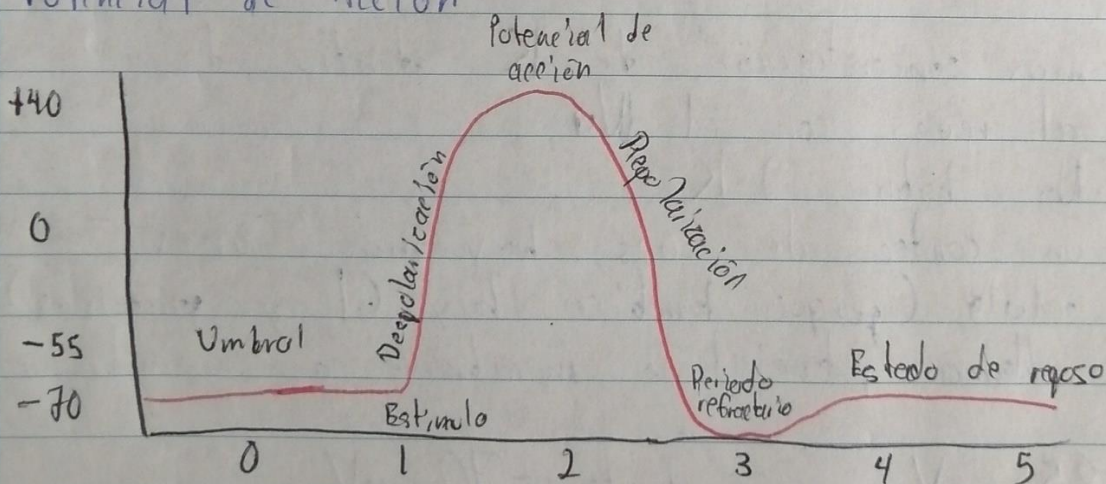 Potencial de acción
Potencial de
acción
+40
0
-55
-70
Umbral
Despolarización
Repolarización
Estimulo
Periodo
refractario
Estado de reposo
0 1 2 3 4 5